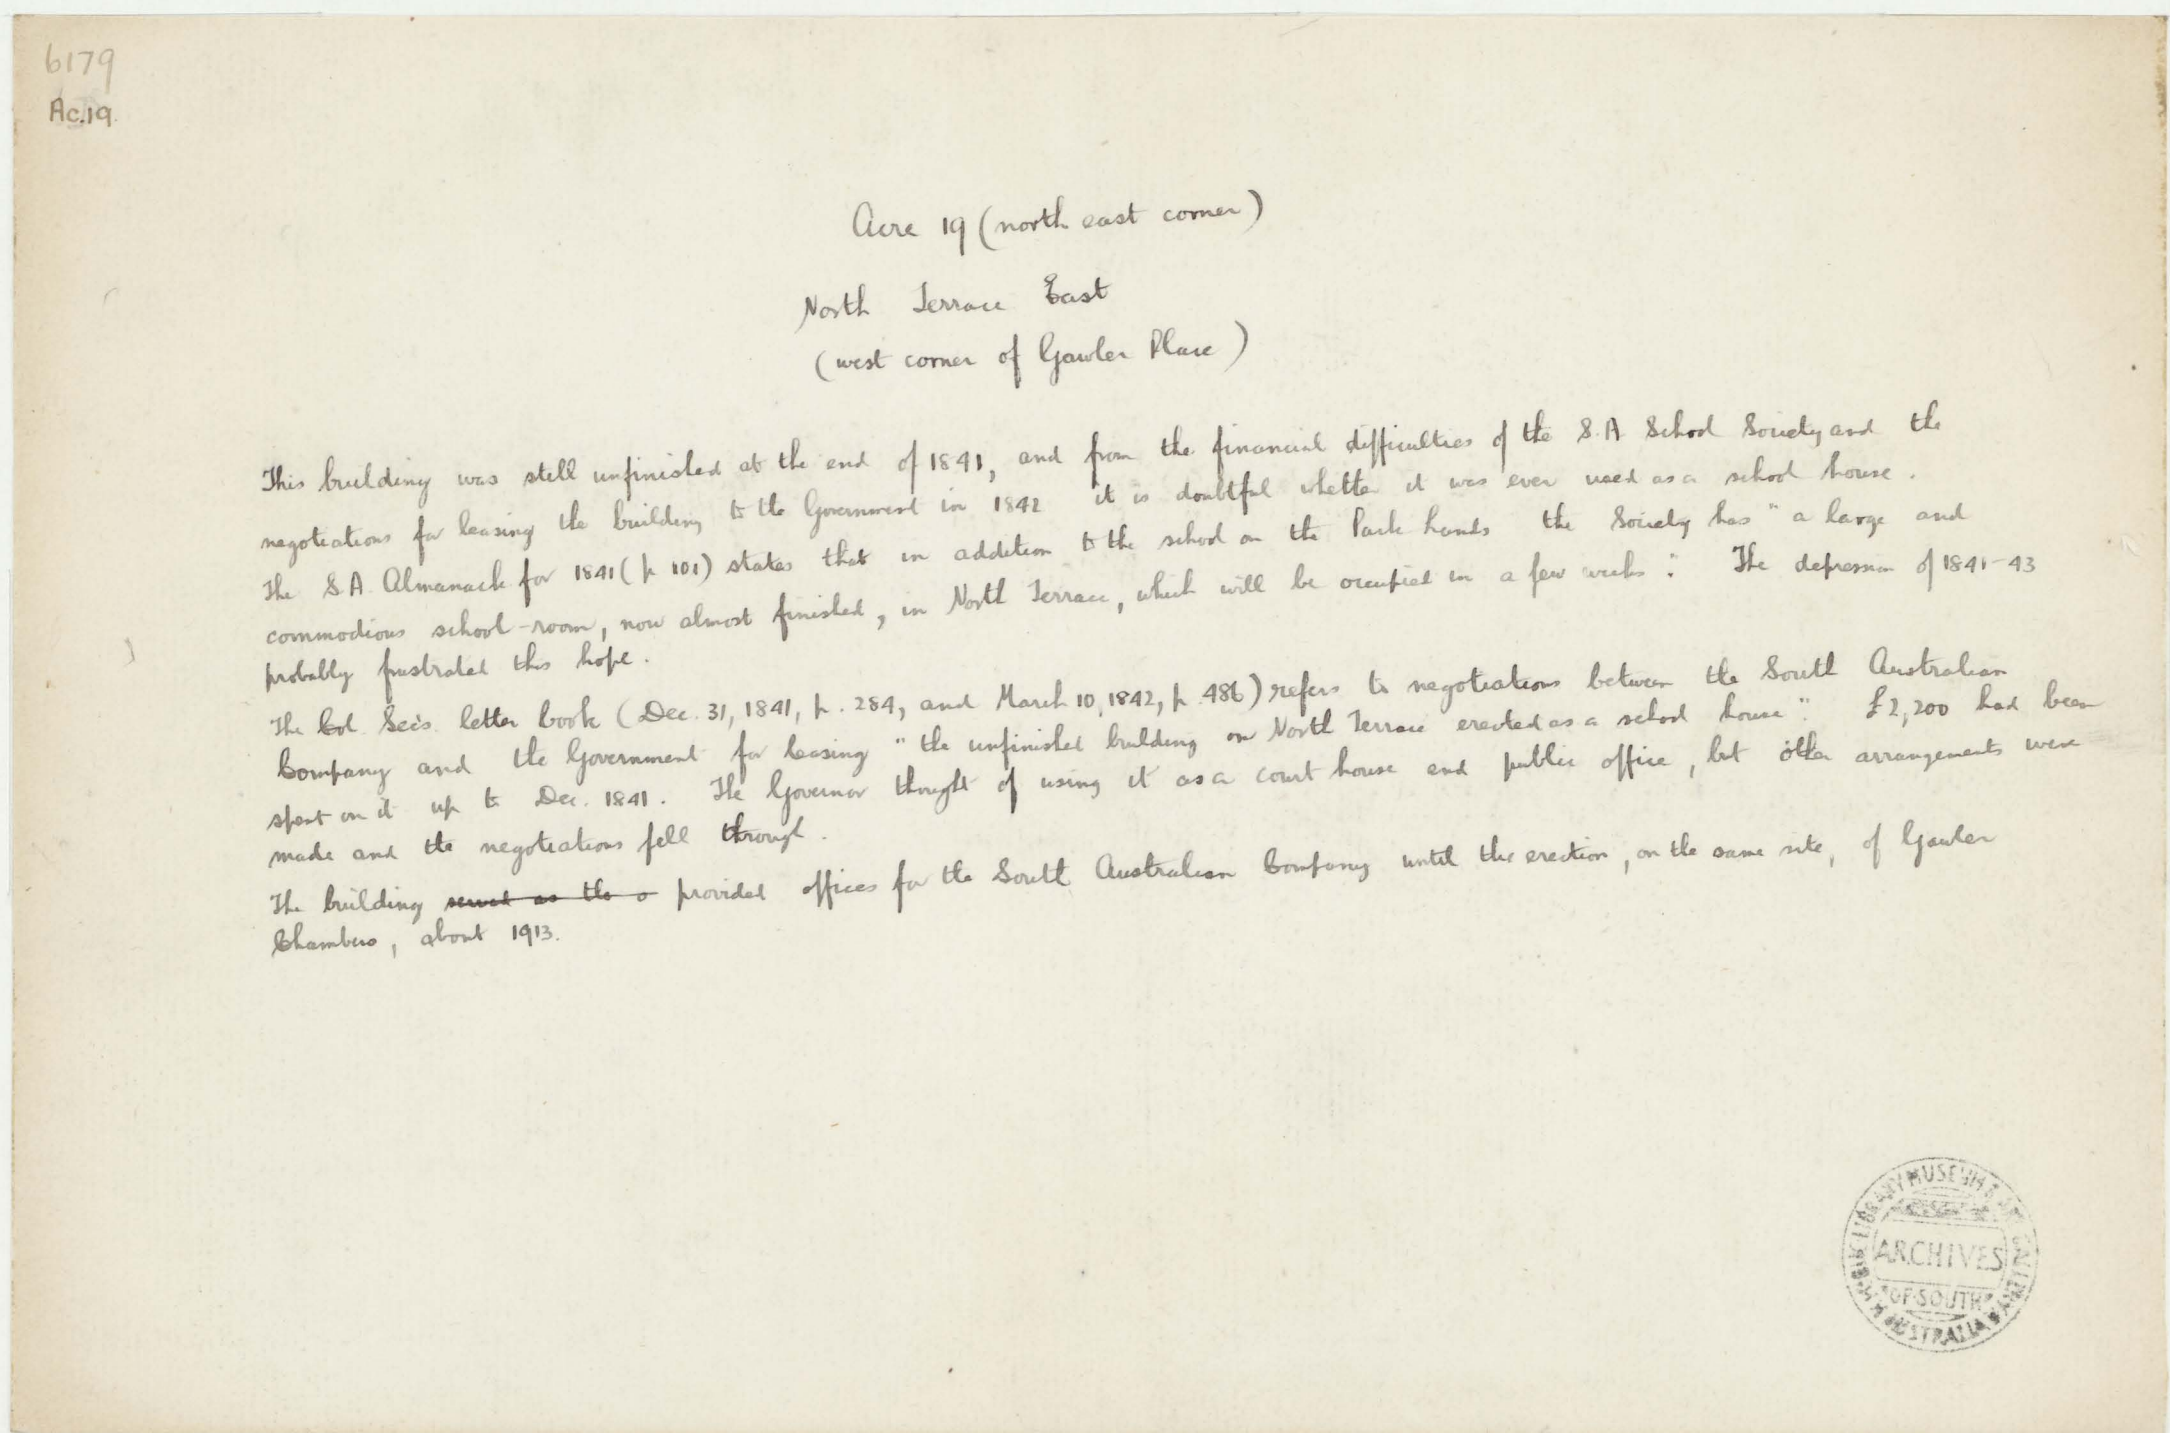 6179
Ac.19.
Acre 19 (north east corner)
North Terrace East
(west corner of Gawler Place)
This building was still unfinished at the end of 1841, and from the financial difficulties of the S.A. School Society and the
negotiations for leasing the building to the Government in 1842 it is doubtful whether it was ever used as a school house.
The S.A. Almanack for 1841 (p 101) states that in addition to the school on the Park Lands the Society has "a large and
commodious school-room, now almost finished, in North Terrace, which will be occupied in a few weeks". The depression of 1841-43
probably frustrated this hope.
The Col. Sec's. letter book (Dec. 31, 1841, p. 284, and March 10, 1842, p. 486) refers to negotiations between the South Australian
Company and the Government for leasing "the unfinished building on North Terrace erected as a school house". £2,200 had been
spent on it up to Dec. 1841. The Governor thought of using it as a court house and public office, but other arrangements were
made and the negotiations fell through.
The building served as the o provided offices for the South Australian Company until the erection, on the same site, of Gawler
Chambers, about 1913.
PUBLIC LIBRARY MUSEUM & ART GALLERY
ARCHIVES
OF SOUTH
AUSTRALIA